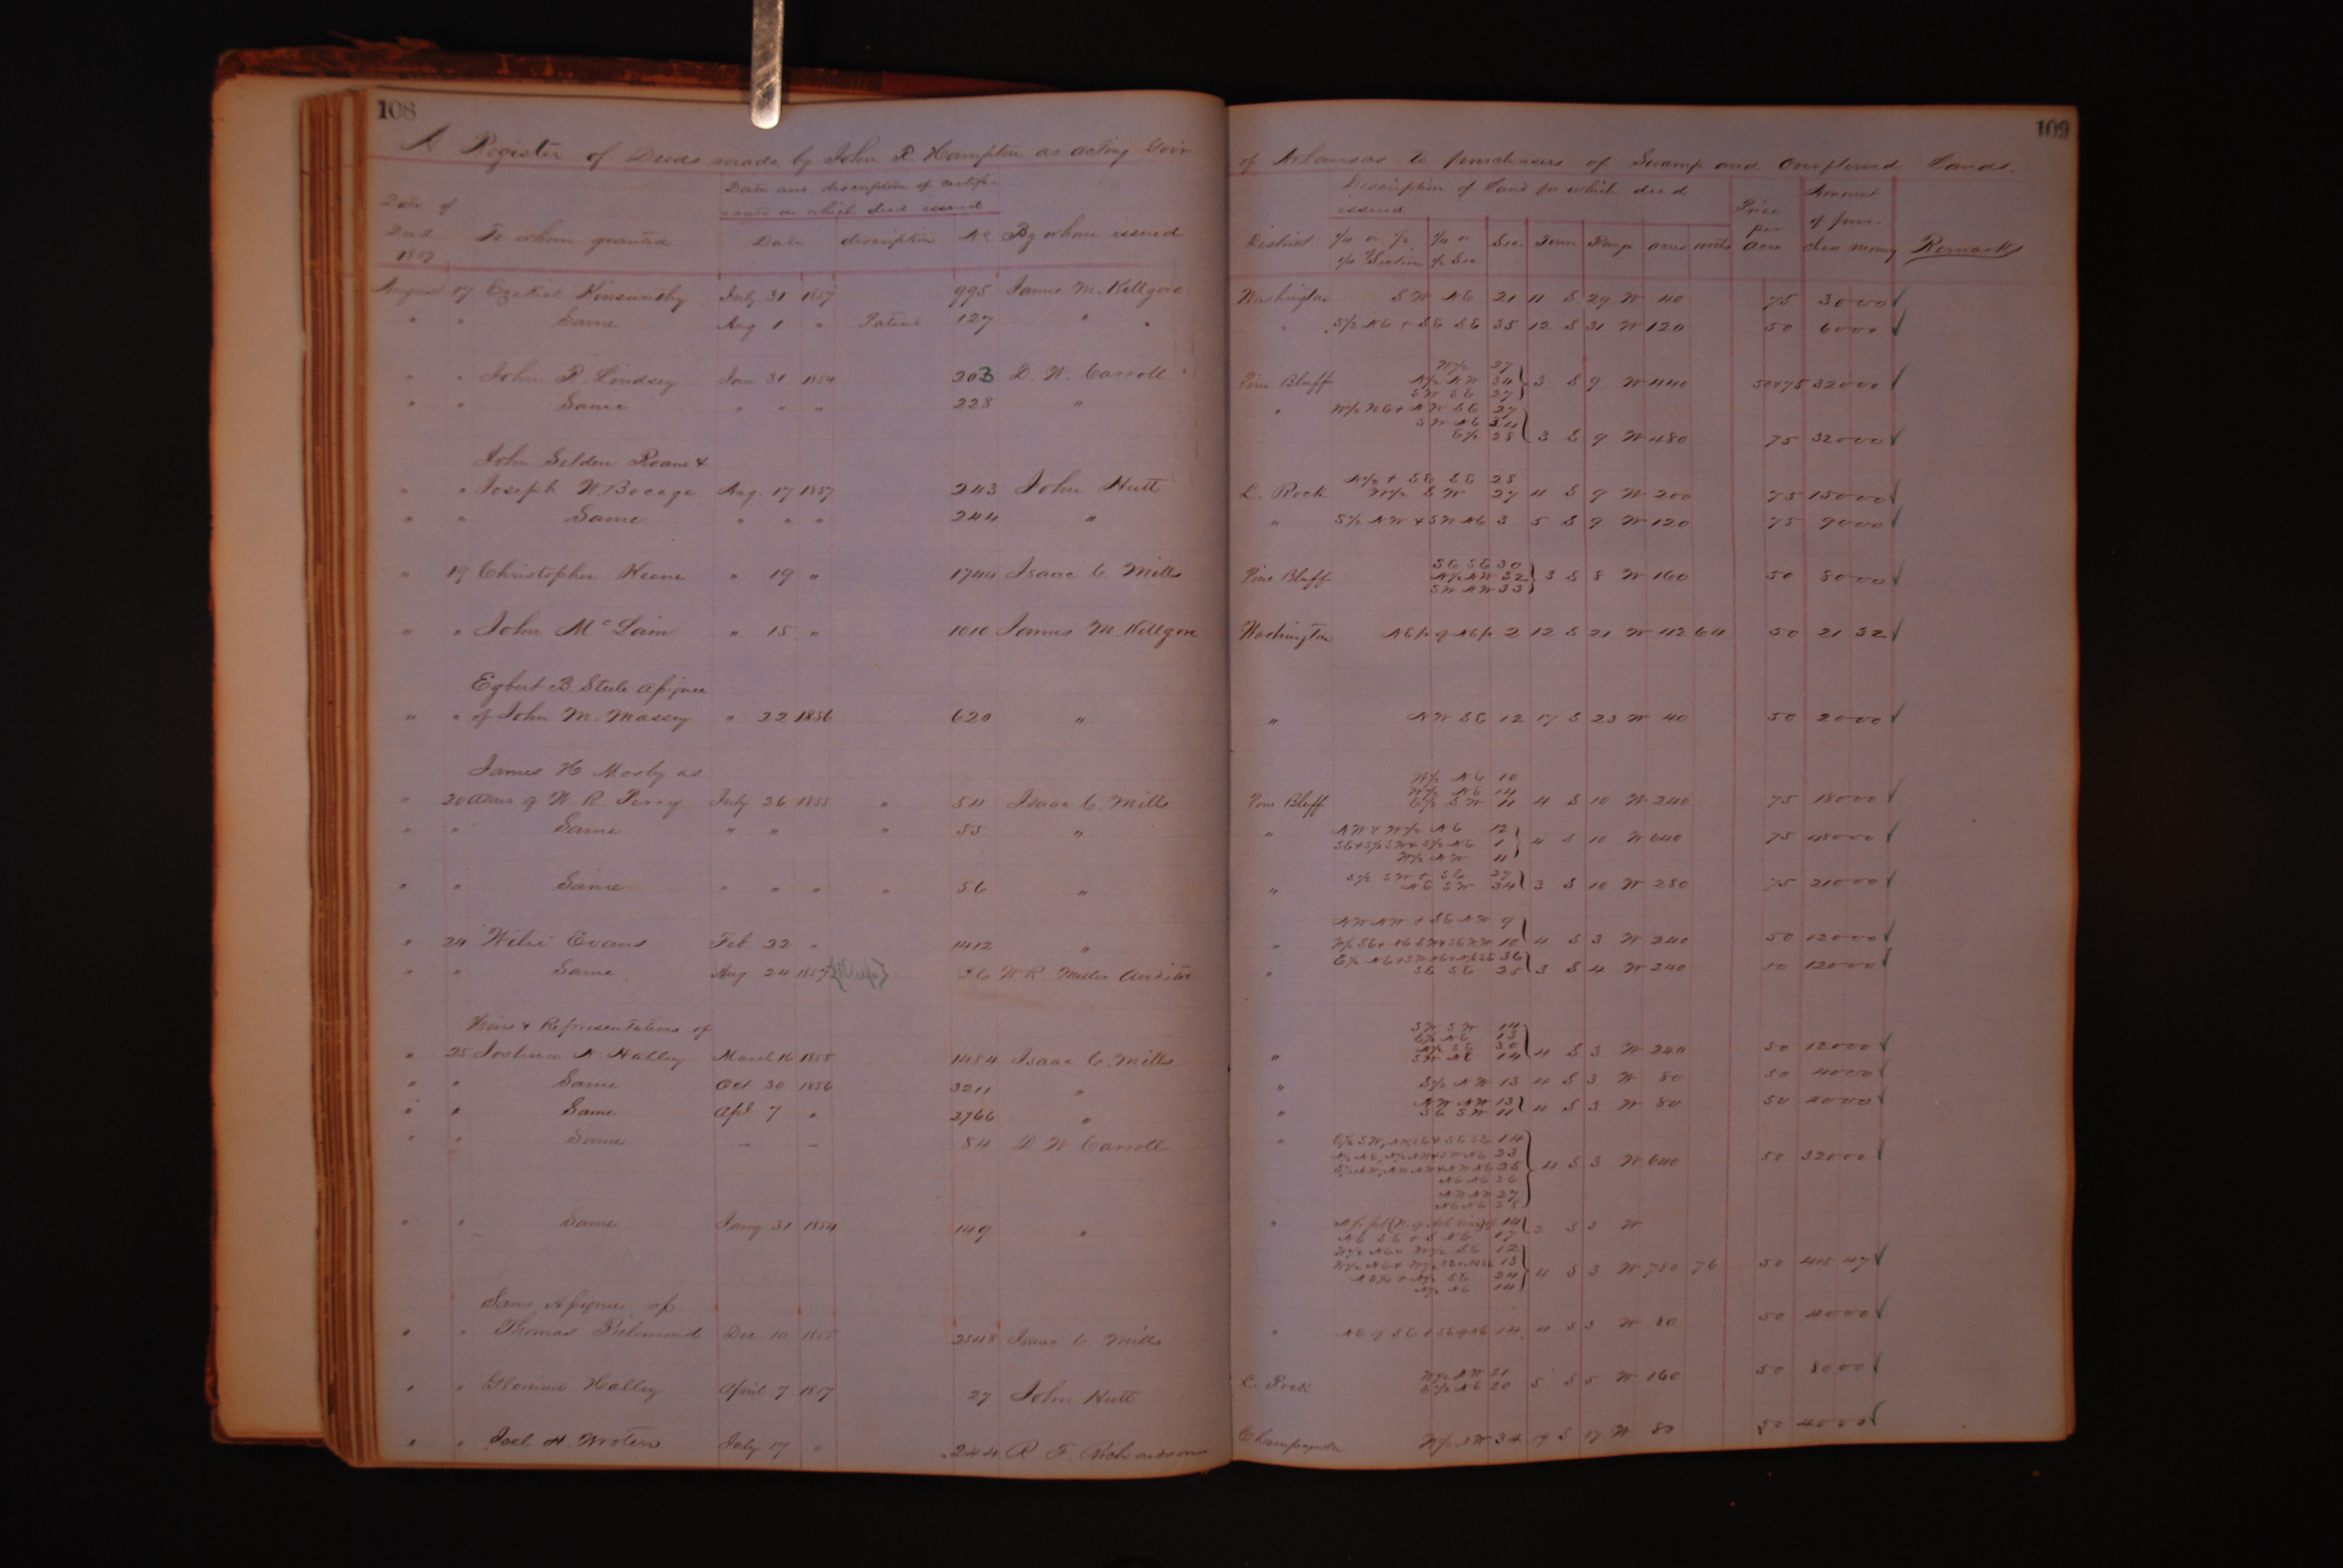 108
109
A Register of Deeds made by John R. Hampton as acting Gov'r of Arkansas to purchasers of Swamp and Overflowed Lands.
Date of Deed 1857 To whom granted Date and description of certificate on which deed issued Date description No By whom issued District Description of Land for which deed issued Sec. Town Range acres Price per acre Amount of purchase money Remarks
August 17 Ezekiel Kinsworthy July 31 1857 995 James M. Killgore Washington SW NE 21 11 S 29 W 40 75 30 00 ✓
" " Same Aug 1 " Patent 127 " " S/2 NE + SE SE 35 12 S 31 W 120 50 60 00 ✓
" " John P. Lindsey Jan 31 1854 203 D. W. Carroll Pine Bluff W/2 27
N/2 NW 34 3 S 9 W 440 50 & 75 320 00 ✓
SW SE 27
" " Same " " " 228 " " W/2 NE + NW SE 27
SW NE 34
E/2 28 3 S 9 W 480 75 320 00 ✓
John Selden Roane &
" " Joseph W. Bocage Aug. 17 1857 243 John Hutt L. Rock N/2 + SE SE 28
W/2 SW 27 4 S 9 W 200 75 150 00 ✓
" " Same " " " 244 " " S/2 NW + SW NE 3 5 S 9 W 120 75 90 00 ✓
" 19 Christopher Keene " 19 " 1744 Isaac C. Mills Pine Bluff SE SE 30
N/2 NW 32 3 S 8 W 160 50 80 00 ✓
SW NW 33
" " John McLain " 15 " 1010 James M. Killgore Washington 2 12 S 21 W 42 64 50 21 32 ✓
Egbert B. Steele Assignee
" " of John M. Massey " 22 1856 620 " " NW SE 12 17 S 23 W 40 50 20 00 ✓
James H Mosby as
" 20 Admr of W R. Perry July 26 1855 " 54 Isaac C. Mills Pine Bluff W/2 NE 10
W/2 NE 14
E/2 SW 11 4 S 10 W 240 75 180 00 ✓
" " Same " " " 55 " " NW + W/2 NE 12
SE + S/2 SW + S/2 NE 1 4 S 10 W 640 75 480 00 ✓
W/2 NW 11
" " Same " " " " 56 " " S/2 SW + SE 27
NE SW 34 3 S 10 W 280 75 210 00 ✓
" 24 Wilie Evans Feb. 22 " 1412 " " NW NW + SE NW 9
10 4 S 3 W 240 50 120 00 ✓
" " Same Aug 24 1857 26 W. R. Miller Auditor " 36
SE SE 25 3 S 4 W 240 50 120 00 ✓
Heirs & Representatives of
" 25 Joshua N Halley March 16 1855 1484 Isaac C. Mills " SW SW 14
E/2 NE 13
N/2 SE 30
SW NE 14 4 S 3 W 240 50 120 00 ✓
" " Same Oct 30 1856 3211 " " S/2 NW 13 4 S 3 W 80 50 40 00 ✓
" " Same Apl 7 " 2766 " " NW NW 13
SE SW 11 4 S 3 W 80 50 40 00 ✓
" " Same — — 84 D. W Carroll " 14
23
25 4 S 3 W 640 50 320 00 ✓
NE NE 26
NW NW 27
NE NE 28
" " Same Jany 31 1854 149 " " 14 S 3 W
17
W/2 NE + W/2 SE 12
13
24 4 S 3 W 780 76 50 415 47 ✓
14
Same Assignee of
" " Thomas Richmond Dec 10 1855 2548 Isaac C. Mills " 14 4 S 3 W 80 50 40 00 ✓
" " Halley April 7 1857 27 John Hutt L. Rock W/2 NW 21
E/2 NE 20 5 S 5 W 160 50 80 00 ✓
" " Joel H. Wroten July 17 " 244 R. F. Richardson Champagnole W/2 NW 34 17 S 17 W 80 50 40 00 ✓